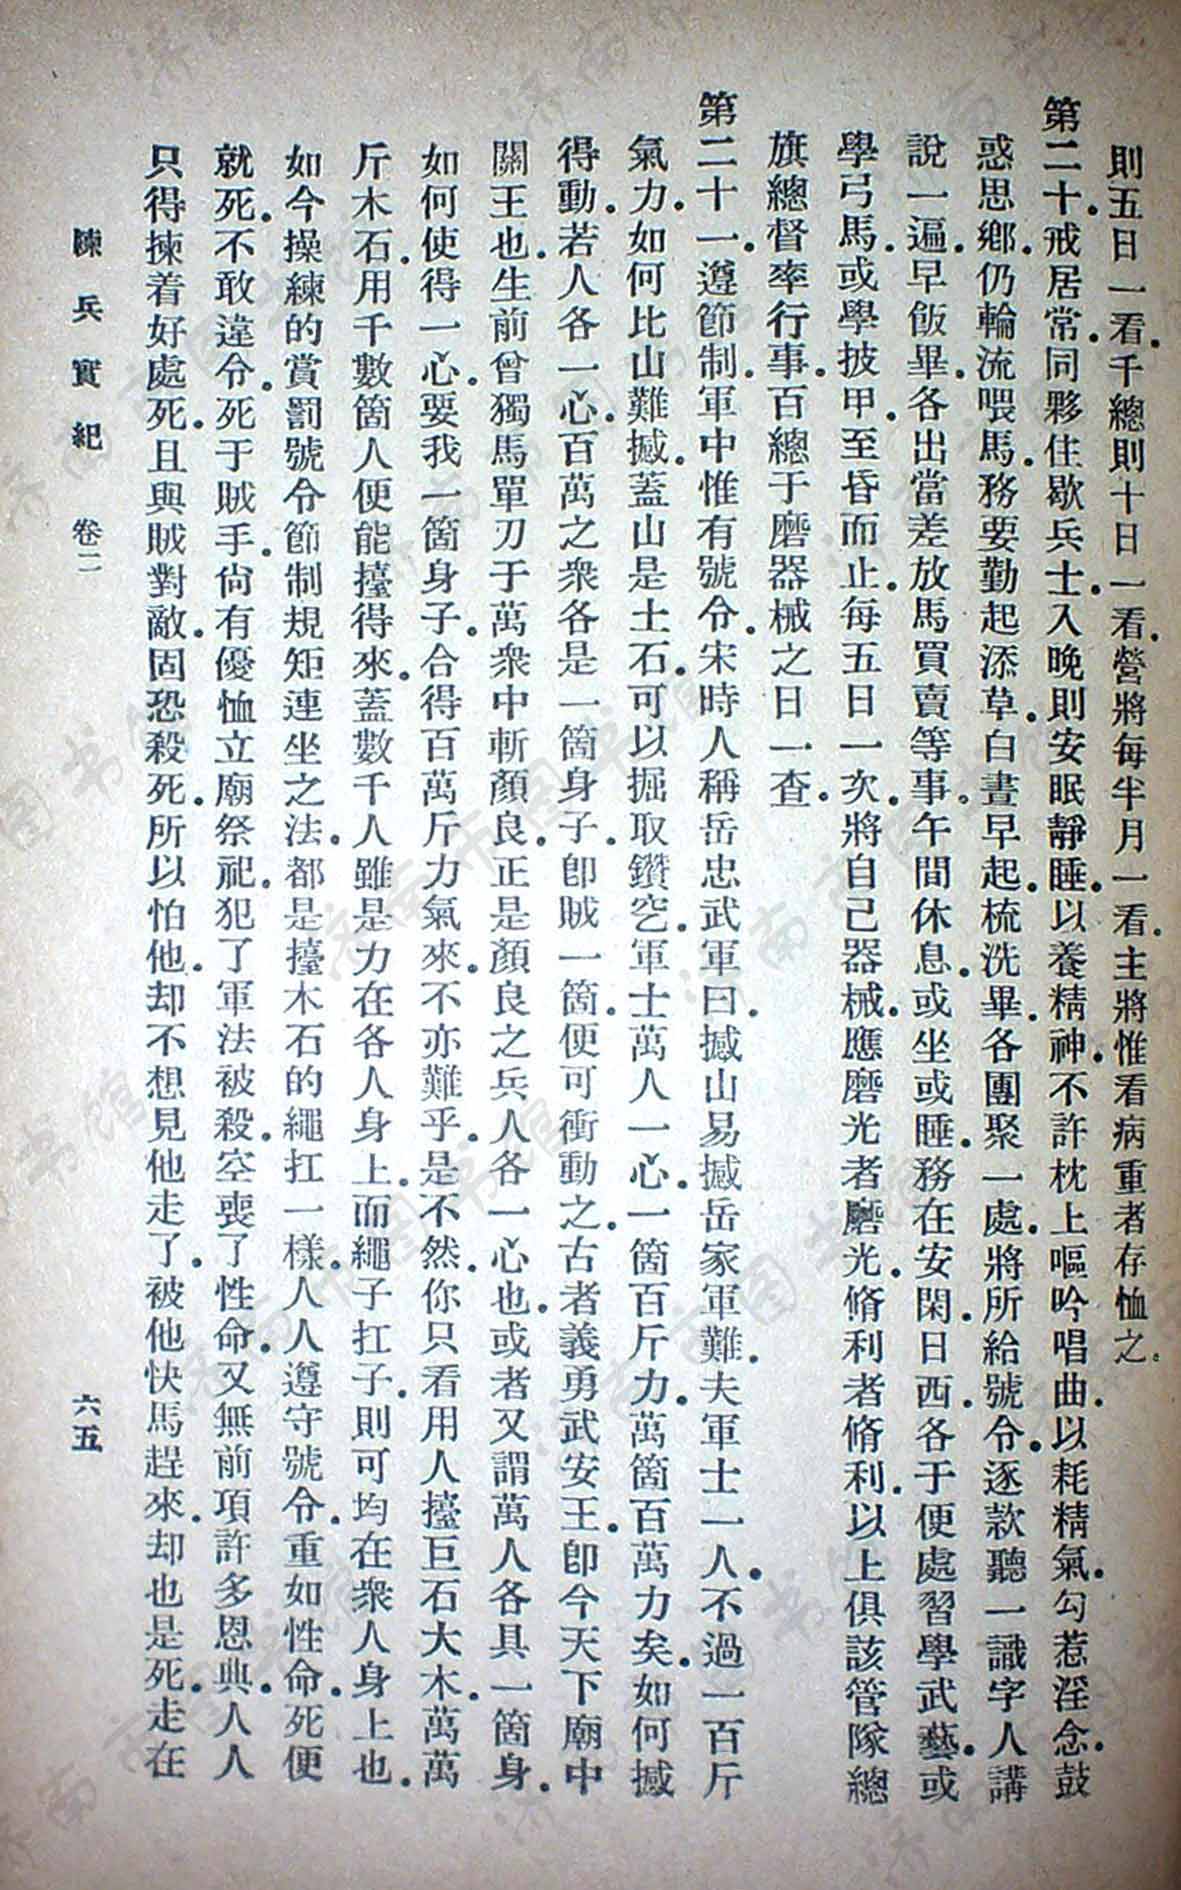 則五日一看。千總則十日一看。營將每半月一看。主將惟看病重者存恤之。
第二十。戒居常。同夥住歇兵士。入晚則安眠靜睡。以養精神。不許枕上嘔吟唱曲。以耗精氣。勾惹淫念。鼓
惑思鄉。仍輪流喂馬。務要勤起添草。白晝早起。梳洗畢。各團聚一處。將所給號令。逐款聽一識字人講
說一遍。早飯畢。各出當差放馬買賣等事。午間休息。或坐或睡。務在安閑。日西。各于便處習學武藝。或
學弓馬。或學披甲。至昏而止。每五日一次。將自己器械。應磨光者磨光。脩利者脩利。以上俱該管隊總
旗總督率行事。百總于磨器械之日一查。
第二十一。遵節制。軍中惟有號令。宋時人稱岳忠武軍曰。撼山易撼岳家軍難。夫軍士一人。不過一百斤
氣力。如何比山難撼。蓋山是土石。可以掘取鑽空。軍士萬人一心。一箇百斤力。萬箇百萬力矣。如何撼
得動。若人各一心。百萬之衆。各是一箇身子。卽賊一箇。便可衝動之。古者義勇武安王。卽今天下廟中
關王也。生前曾獨馬單刃于萬衆中斬顏良。正是顏良之兵。人各一心也。或者又謂萬人各具一箇身。
如何使得一心。要我一箇身子。合得百萬斤力氣來。不亦難乎。是不然。你只看用人擡巨石大木。萬萬
斤木石。用千數箇人便能擡得來。蓋數千人雖是力在各人身上。而繩子扛子。則可均在衆人身上也。
如今操練的賞罰號令節制規矩連坐之法。都是擡木石的繩扛一樣。人人遵守號令。重如性命。死便
就死。不敢違令。死于賊手。尙有優恤立廟祭祀。犯了軍法被殺。空喪了性命。又無前項許多恩典。人人
只得揀着好處死。死且與賊對敵。固恐殺死。所以怕他。却不想見他走了。被他快馬趕來。却也是死。走在
練兵實紀 卷二 六五
济南市图书馆